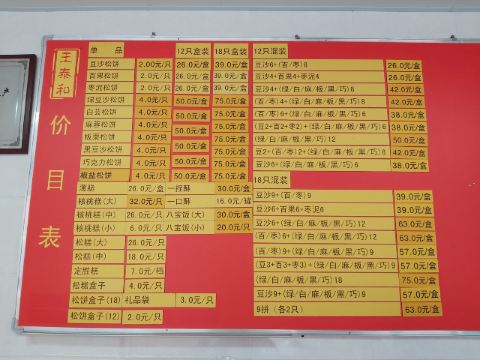 王泰和
价目表
单品 12只盒装 18只盒装
豆沙松饼 2.00元/只 26.0元/盒 39.0元/盒
百果松饼 2.0元/只 26.0元/盒 39.0元/盒
枣泥松饼 2.0元/只 26.0元/盒 39.0元/盒
绿豆沙松饼 4.0元/只 50.0元/盒 75.0元/盒
白芸松饼 4.0元/只 50.0元/盒 75.0元/盒
麻蓉松饼 4.0元/只 50.0元/盒 75.0元/盒
板栗松饼 4.0元/只 50.0元/盒 75.0元/盒
黑豆沙松饼 4.0元/只 50.0元/盒 75.0元/盒
巧克力松饼 4.0元/只 50.0元/盒 75.0元/盒
椒盐松饼 4.0元/只 50.0元/盒 75.0元/盒
26.0元/盒 一捏酥 30.0元/盒
核桃糕(大) 32.0元/只 一口酥 16.0元/罐
核桃糕(中) 26.0元/只 八宝饭(大) 30.0元/只
核桃糕(小) 6.0元/只 八宝饭(小) 20.0元/只
松糕(大) 26.0元/只
松糕(中) 18.0元/只
定胜糕 7.0元/
松糕盒子 4.0元/只
松饼盒子(18) 礼品袋 3.0元/只
松饼盒子(12) 2.0元/只
12只混装
豆沙6+(百/枣)6 26.0元/盒
豆沙4+百果4+枣泥4 26.0元/盒
豆沙4+(绿/白/麻/板/黑/巧)8 42.0元/盒
(百/枣)4+(绿/白/麻/板/黑/巧)8 42.0元/盒
(百/枣)6+(绿/白/麻/板/黑/巧)6 38.0元/盒
(豆2+百2+枣2)+(绿/白/麻/板/黑/巧)6 38.0元/盒
(绿/白/麻/板/黑/巧)12 50.0元/盒
(豆2+百2+枣2)+(绿/白/麻/板/黑/巧)6 38.0元/盒
豆沙6+(绿/白/麻/板/黑/巧)6 38.0元/盒
18只混装
豆沙9+(百/枣)9 39.0元/盒
豆沙6+百果6+枣泥6 39.0元/盒
豆沙6+(绿/白/麻/板/黑/巧)12 63.0元/盒
(百/枣)6+(绿/白/麻/板/黑/巧)12 63.0元/盒
(百/枣)9+(绿/白/麻/板/黑/巧)9 57.0元/盒
(豆3+百3+枣3)+(绿/白/麻/板/黑/巧)9 57.0元/盒
(绿/白/麻/板/黑/巧)18 75.0元/盒
豆沙9+(绿/白/麻/板/黑/巧)9 57.0元/盒
9拼(各2只) 63.0元/盒